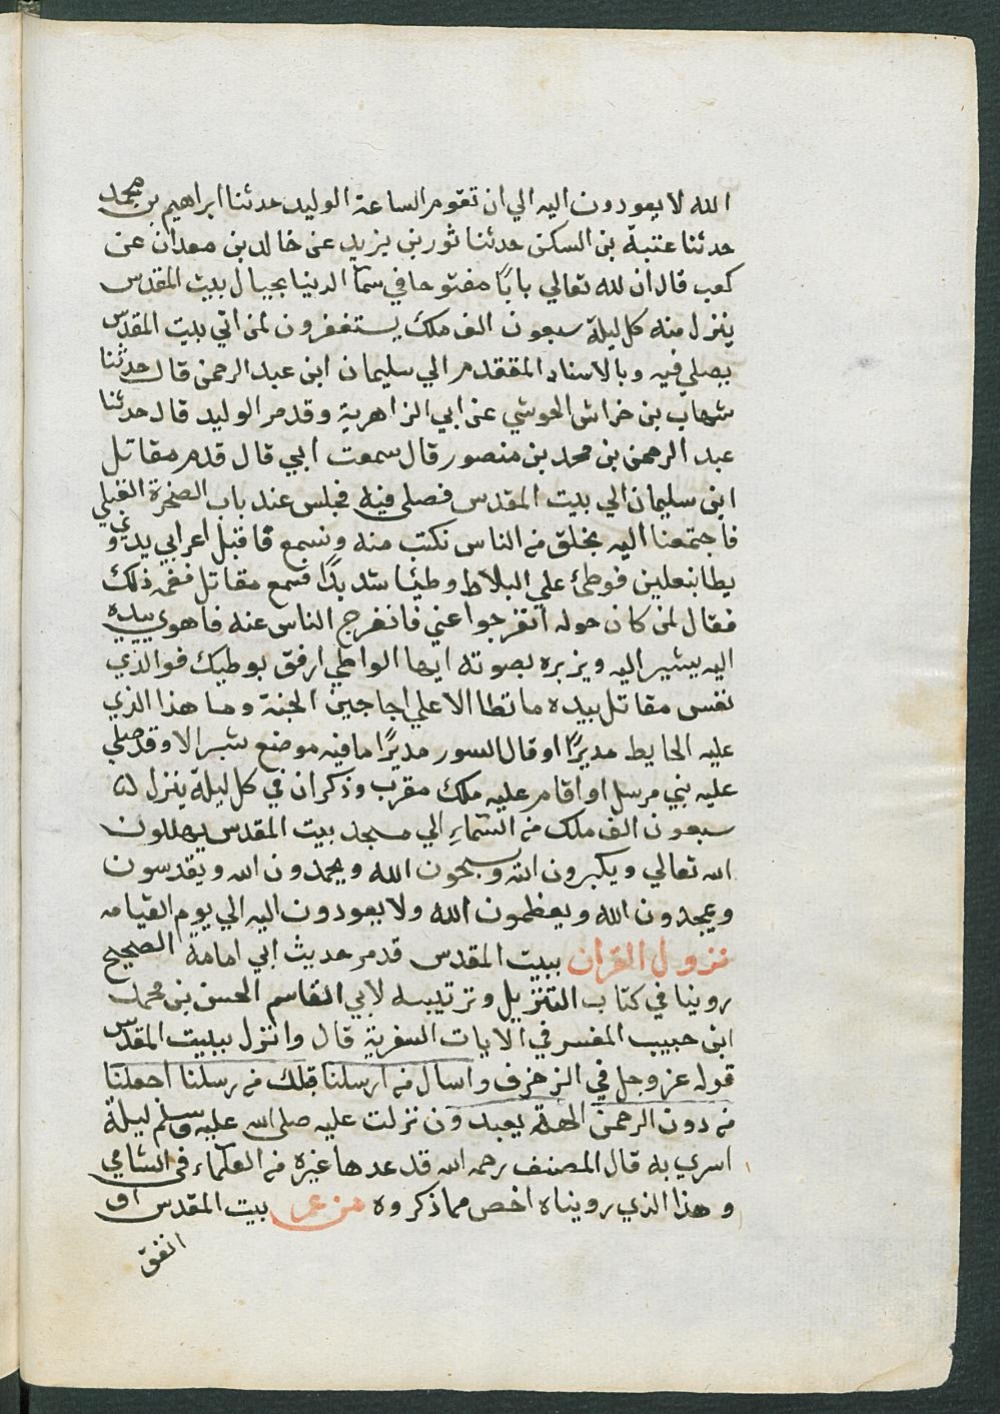 الله لا يعودون اليه الي ان تقوم الساعة الوليد حدثنا ابراهيم بن محمد
حدثنا عتبة بن السكن حدثنا ثور بن يزيد عن خالد بن معدان عن
كعب قال ان لله تعالي بابًا مفتوحا في سمآ الدنيا بحيال بيت المقدس
ينزل منه كل ليلة سبعون الف ملك يستغفرون لمن اتي بيت المقدس
يصلي فيه وبالاسناد المتقدم الي سليمان ابن عبد الرحمن قال حدثنا
شهاب بن خراش الحوشي عن ابي الزاهرية وقدم الوليد قال حدثنا
عبد الرحمن بن محمد بن منصور قال سمعت ابي قال قدم مقاتل
ابن سليمان الي بيت المقدس فصلي فيه فجلس عند باب الصخرة القبلي
فاجتمعنا اليه بخلق من الناس نكتب منه ونسمع فاقبل اعرابي بدوي
يطا بنعلين فوطئ علي البلاط وطئا شديدًا فسمع مقاتل فغمه ذلك
فقال لمن كان حوله انفرجوا عني فانفرج الناس عنه فاهوي بيده
اليه يشير اليه ويزبره بصوته ايها الواطي ارفق بوطيك فوالذي
نفس مقاتل بيده ما تطا الا علي اجاجين الجنة وما هذا الذي
عليه الحايط مديرًا او قال السور مديرًا ما فيه موضع شبر الا وقد صلي
عليه نبي مرسل او اقام عليه ملك مقرب وذكر ان في كل ليلة ينزل
سبعون الف ملك من السماء الي مسجد بيت المقدس يهللون
الله تعالي ويكبرون الله ويسبحون الله ويحمدون الله ويقدسون
ويمجدون الله ويعظمون الله ولا يعودون اليه الي يوم القيامه
نزول القران ببيت المقدس قدم حديث ابي امامة الصحيح
روينا في كتاب التنزيل وترتيبه لابي القاسم الحسن بن محمد
ابن حبيب المفسر في الايات السفرية قال وانزل ببيت المقدس
قوله عز وجل في الزخرف واسال من ارسلنا قبلك من رسلنا اجعلنا
من دون الرحمن الهة يعبدون نزلت عليه صلى الله عليه وسلم ليلة
اسري به قال المصنف رحمه الله قد عدها غيره من العلماء في الشامي
وهذا الذي رويناه اخص مما ذكروه من عمر بيت المقدس او
انفق